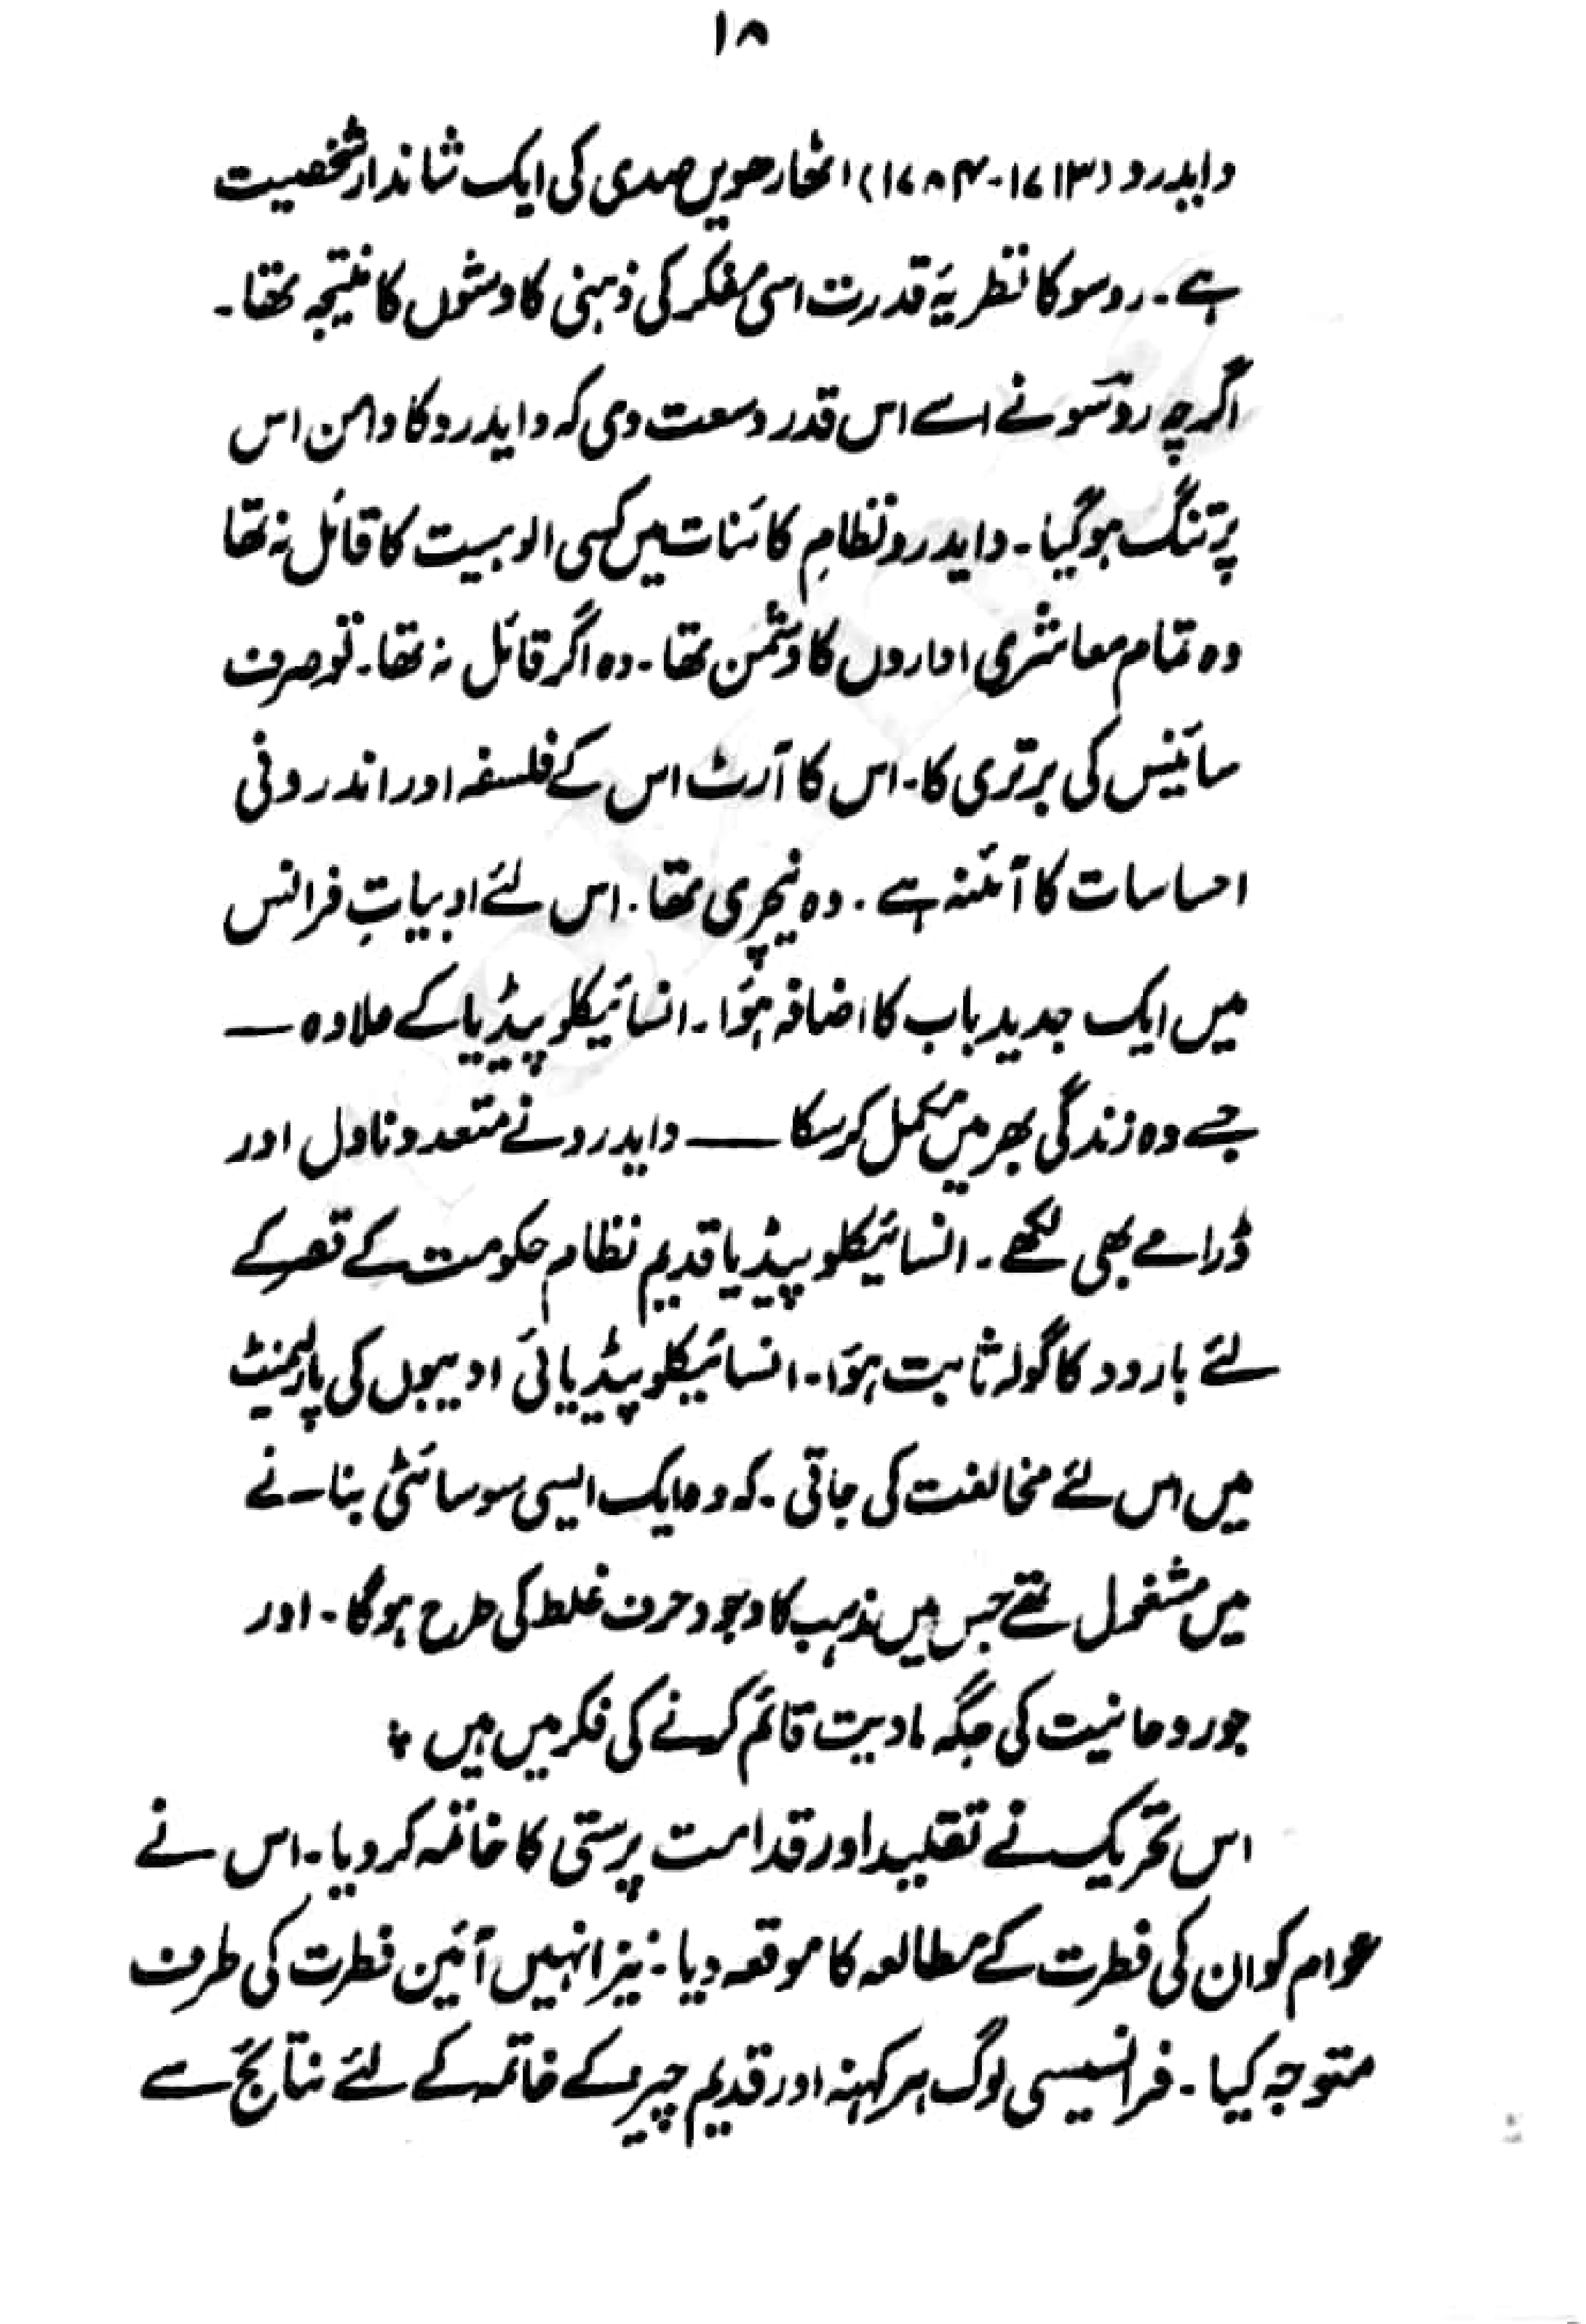 ۱۸
دایدرو (۱۷۱۳-۱۷۸۴) اٹھارھویں صدی کی ایک شاندار شخصیت
ہے۔ روسو کا نظریۂ قدرت اسی مفکر کی ذہنی کاوشوں کا نتیجہ تھا۔
اگرچہ روسو نے اسے اس قدر وسعت دی کہ دایدرو کا دامن اس
پر تنگ ہو گیا۔ دایدرو نظامِ کائنات میں کسی الوہیت کا قائل نہ تھا
وہ تمام معاشری اداروں کا دشمن تھا۔ وہ اگر قائل نہ تھا۔ تو صرف
سائنیس کی برتری کا۔ اس کا آرٹ اس کے فلسفہ اور اندرونی
احساسات کا آئنہ ہے۔ وہ نیچری تھا۔ اس لئے ادبیاتِ فرانس
میں ایک جدید باب کا اضافہ ہؤا۔ انسائیکلو پیڈیا کے علاوہ —
جسے وہ زندگی بھر میں مکمل کر سکا — دایدرو نے متعدد ناول اور
ڈرامے بھی لکھے۔ انسائیکلو پیڈیا قدیم نظام حکومت کے قصر کے
لئے بارود کا گولہ ثابت ہؤا۔ انسائیکلو پیڈیائی ادیبوں کی پارلیمنٹ
میں اس لئے مخالفت کی جاتی۔ کہ وہ ایک ایسی سوسائٹی بنانے
میں مشغول تھے جس میں مذہب کا وجود حرف غلط کی طرح ہوگا۔ اور
جو روحانیت کی جگہ مادیت قائم کرنے کی فکر میں ہیں ؛
اس تحریک نے تقلید اور قدامت پرستی کا خاتمہ کر دیا۔ اس نے
عوام کو ان کی فطرت کے مطالعہ کا موقعہ دیا۔ نیز انہیں آئین فطرت کی طرف
متوجہ کیا۔ فرانسیسی لوگ ہر کہنہ اور قدیم چیز کے خاتمہ کے لئے نتائج سے